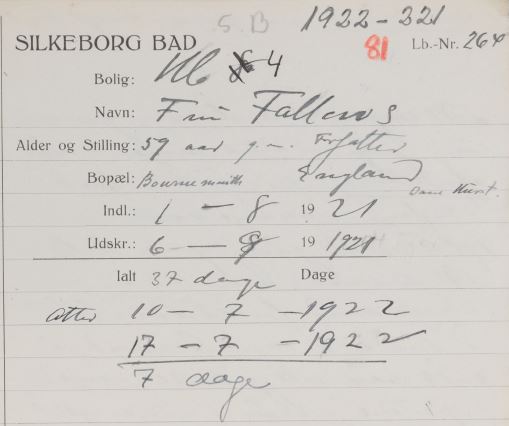 S.B 1922-221
SILKEBORG BAD 81 Lb.-Nr. 264
Bolig: 4
Navn: Fru Fallows
Alder og Stilling: 59 aar g.m. Forfatter
Bopæl: Bournemouth England
Indl.: 1 - 8 19 21
Udskr.: 6 - 9 19 1921
Ialt 37 dage Dage
atter 10 - 7 - 1922
17 - 7 - 1922
7 dage